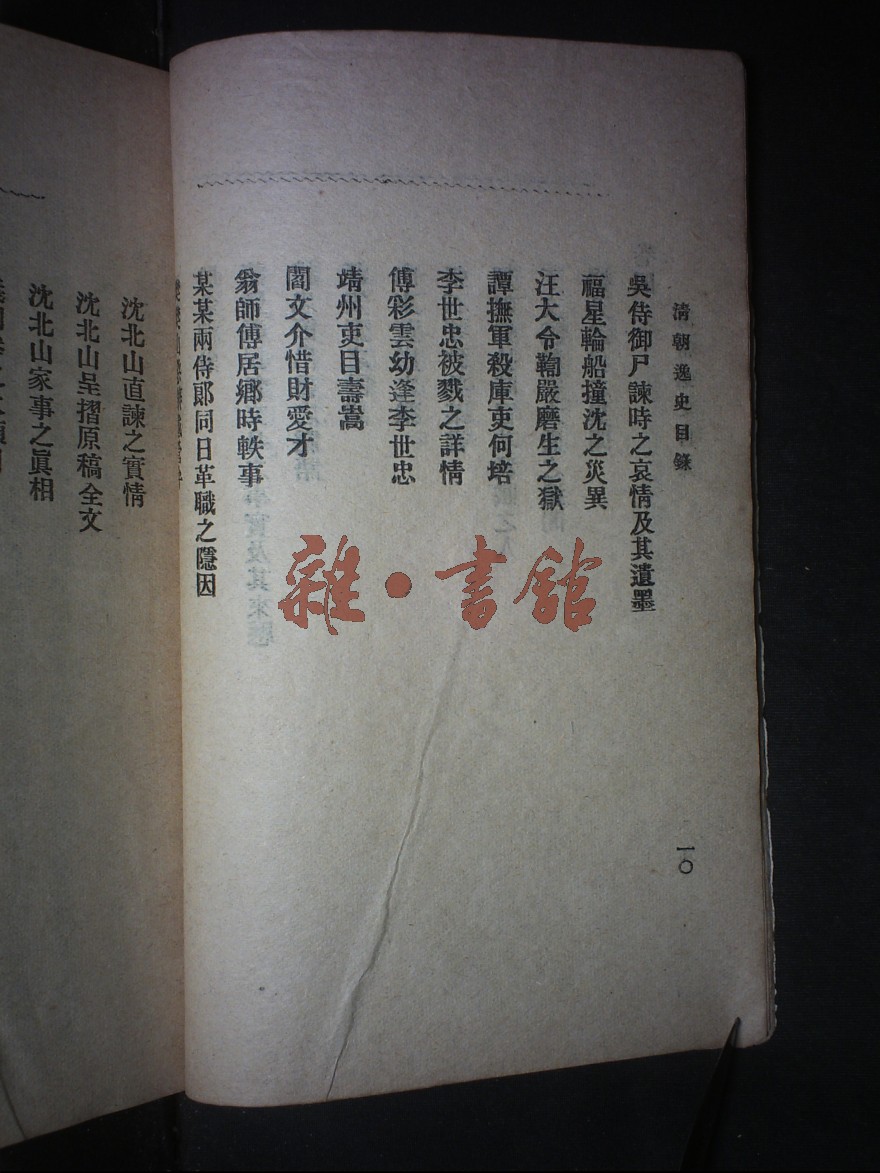 清朝逸史目錄
一〇
吳侍御尸諫時之哀情及其遺墨
福星輪船撞沈之災異
汪大令鞫嚴磨生之獄
譚撫軍殺庫吏何培
李世忠被戮之詳情
傅彩雲幼逢李世忠
靖州吏目壽嵩
閻文介惜財愛才
翁師傅居鄉時軼事
某某兩侍郎同日革職之隱因
沈北山直諫之實情
沈北山呈摺原稿全文
沈北山家事之眞相
雜·書館